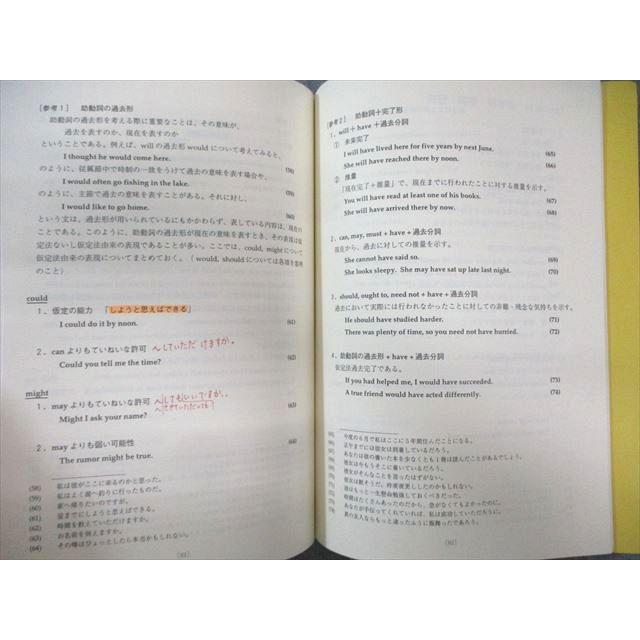 [参考1] 助動詞の過去形
助動詞の過去形を考える際に重要なことは、その意味が、
過去を表すのか、現在を表すのか
ということである。例えば、will の過去形 would について考えてみると、
I thought he would come here. (58)
のように、従属節中で時制の一致をうけて過去の意味を表す場合や、
I would often go fishing in the lake. (59)
のように、主節で過去の意味を表すことがある。それに対し、
I would like to go home. (60)
という文は、過去形が用いられているにもかかわらず、表している内容は、現在の
ことである。このように、助動詞の過去形が現在の意味を表すとき、その表現は仮
定法ないし仮定法由来の表現であることが多い。ここでは、could, might について
仮定法由来の表現についてまとめておく。(would, should については各項を参照
のこと)
could
1. 仮定の能力 「しようと思えばできる」
I could do it by noon. (61)
2. can よりもていねいな許可 〜していただけますか。
Could you tell me the time? (62)
might
1. may よりもていねいな許可 〜してもいいですか。
Might I ask your name? (63)
2. may よりも弱い可能性
The rumor might be true. (64)
(58) 私は彼がここに来るのかと思った。
(59) 私はよく湖へ釣りに行ったものだ。
(60) 家へ帰りたいのですが。
(61) 昼までにしようと思えばできる。
(62) 時間を教えていただけますか。
(63) お名前を伺えますか。
(64) その噂はひょっとしたら本当かもしれない。
[参考2] 助動詞+完了形
1. will + have + 過去分詞
① 未来完了
I will have lived here for five years by next June. (65)
She will have reached there by noon. (66)
② 推量
「現在完了+推量」で、現在までに行われたことに対する推量を示す。
You will have read at least one of his books. (67)
She will have arrived there by now. (68)
2. can, may, must + have + 過去分詞
現在から、過去に対しての推量を示す。
She cannot have said so. (69)
She looks sleepy. She may have sat up late last night. (70)
3. should, ought to, need not + have + 過去分詞
過去において実際には行われなかったことに対しての非難・残念な気持ちを示す。
He should have studied harder. (71)
There was plenty of time, so you need not have hurried. (72)
4. 助動詞の過去形 + have + 過去分詞
仮定法過去完了である。
If you had helped me, I would have succeeded. (73)
A true friend would have acted differently. (74)
(65) 今度の6月で私はここに5年間住んだことになる。
(66) 正午までには彼女は到着しているだろう。
(67) あなたは彼の書いた本を少なくとも1冊は読んだことがあるでしょう。
(68) 彼女は今もうそこに着いているだろう。
(69) 彼女がそんなことを言ったはずがない。
(70) 彼女は眠そうだ。昨夜夜更ししたのかもしれない。
(71) 彼はもっと一生懸命勉強しておくべきだった。
(72) 時間はたくさんあったのだから、急がなくてもよかったのに。
(73) あなたが手伝ってくれていれば、私は成功していただろうに。
(74) 真の友人ならもっと違ったふうに振舞ったであろう。